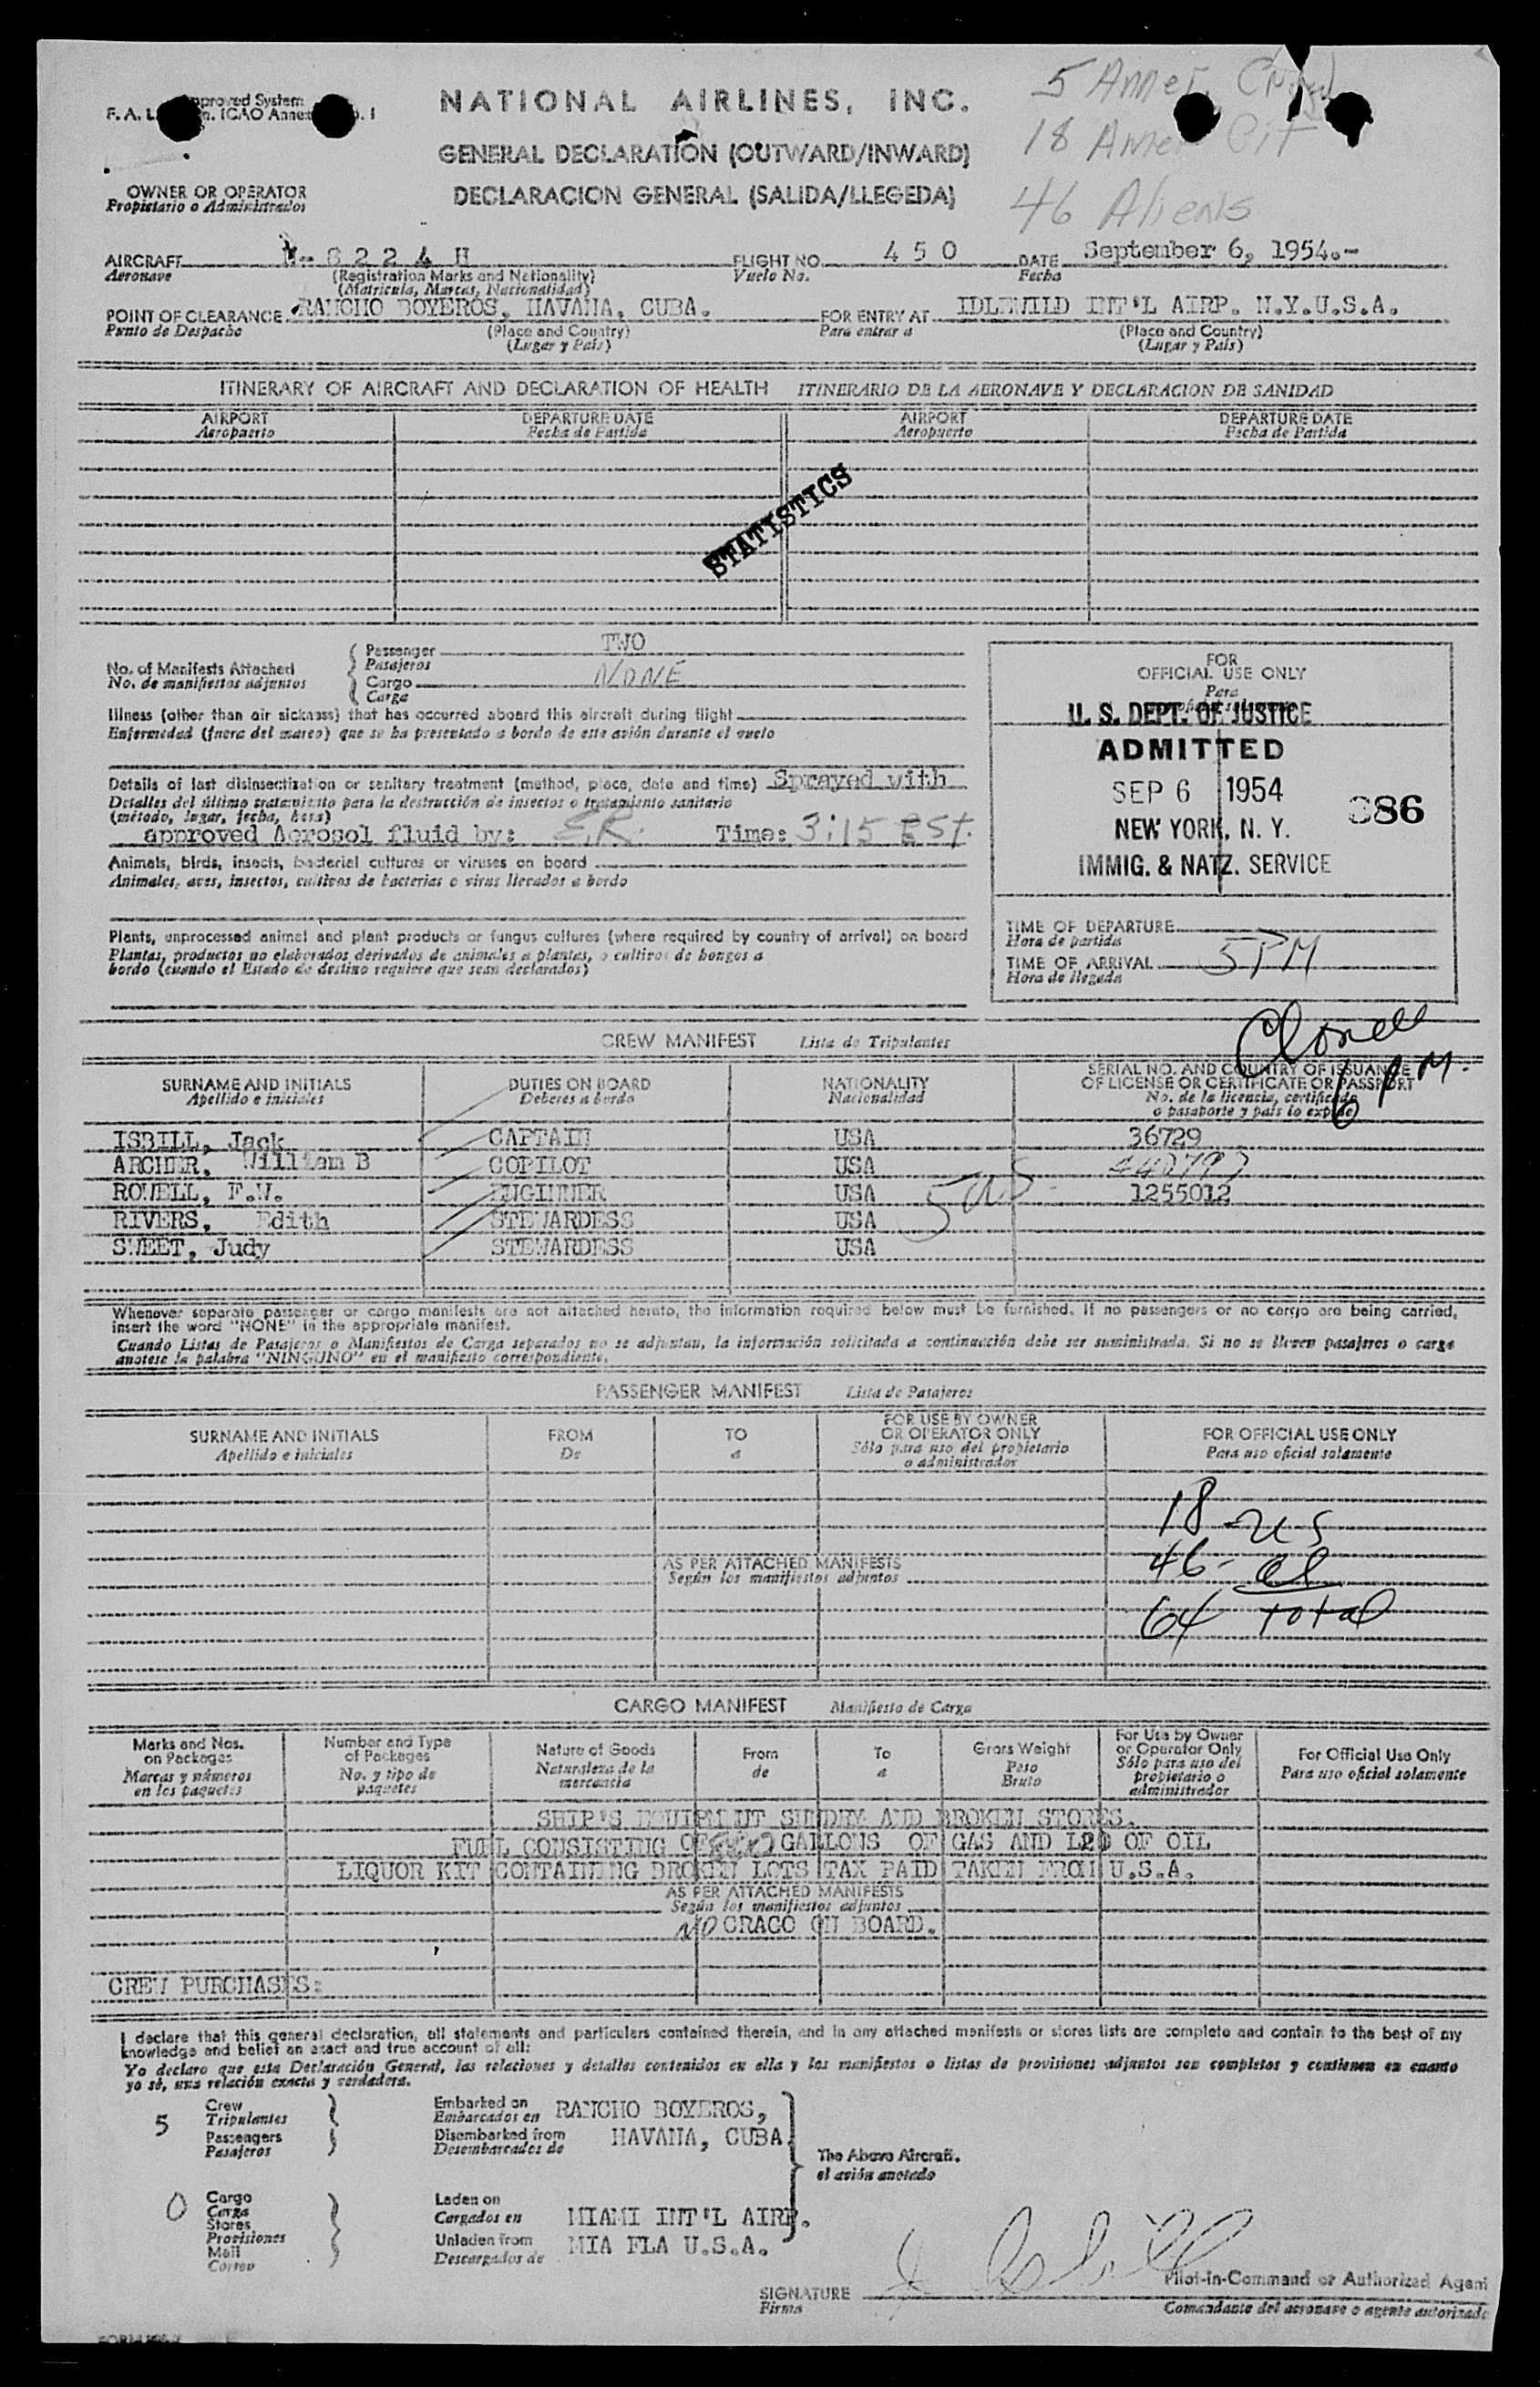 NATIONAL AIRLINES, INC.
5 Amer.
Approved System
F. A. L. ICAO Annex
18 Amer Cit
GENERAL DECLARATION (OUTWARD/INWARD)
46 Aliens
OWNER OR OPERATOR
Propietario o Administrador
DECLARACION GENERAL (SALIDA/LLEGEDA)
AIRCRAFT N-8224 H FLIGHT NO. 450 DATE September 6, 1954.-
Aeronave (Registration Marks and Nationality) Vuelo No. Fecha
(Matricula, Marcas, Nacionalidad)
POINT OF CLEARANCE RANCHO BOYEROS, HAVANA, CUBA. FOR ENTRY AT IDLEWILD INT'L AIRP. N.Y.U.S.A.
Punto de Despacho (Place and Country) Para entrar a (Place and Country)
(Lugar y País) (Lugar y País)
ITINERARY OF AIRCRAFT AND DECLARATION OF HEALTH ITINERARIO DE LA AERONAVE Y DECLARACION DE SANIDAD
AIRPORT DEPARTURE DATE AIRPORT DEPARTURE DATE
Aeropuerto Fecha de Partida Aeropuerto Fecha de Partida
STATISTICS
No. of Manifests Attached
No. de manifiestos adjuntos
Passenger TWO
Pasajeros
Cargo NONE
Carga
Illness (other than air sickness) that has occurred aboard this aircraft during flight
Enfermedad (fuera del mareo) que se ha presentado a bordo de este avión durante el vuelo
Details of last disinsectization or sanitary treatment (method, place, date and time) Sprayed with
Detalles del último tratamiento para la destrucción de insectos o tratamiento sanitario
(método, lugar, fecha, hora)
approved Aerosol fluid by: E.R. Time: 3:15 EST.
Animals, birds, insects, bacterial cultures or viruses on board
Animales, aves, insectos, cultivos de bacterias o virus llevados a bordo
Plants, unprocessed animal and plant products or fungus cultures (where required by country of arrival) on board
Plantas, productos no elaborados derivados de animales a plantas, o cultivos de hongos a
bordo (cuando el Estado de destino requiere que sean declarados)
FOR
OFFICIAL USE ONLY
Para
U. S. DEPT. OF JUSTICE
ADMITTED
SEP 6 1954
386
NEW YORK, N. Y.
IMMIG. & NATZ. SERVICE
TIME OF DEPARTURE
Hora de partida
TIME OF ARRIVAL 5PM
Hora de llegada
6 PM.
CREW MANIFEST Lista de Tripulantes
SURNAME AND INITIALS DUTIES ON BOARD NATIONALITY SERIAL NO. AND COUNTRY OF ISSUANCE
Apellido e iniciales Deberes a bordo Nacionalidad OF LICENSE OR CERTIFICATE OR PASSPORT
No. de la licencia, certificado
o pasaporte y país lo expide
ISBILL, Jack CAPTAIN USA 36729
ARCHER, William B COPILOT USA
ROUELL, F.W. ENGINNER USA 1255012
RIVERS, Edith STEWARDESS USA
SWEET, Judy STEWARDESS USA
Whenever separate passenger or cargo manifests are not attached hereto, the information required below must be furnished. If no passengers or no cargo are being carried,
insert the word "NONE" in the appropriate manifest.
Cuando Listas de Pasajeros o Manifiestos de Carga separados no se adjuntan, la información solicitada a continuación debe ser suministrada. Si no se lleven pasajeros o carga
anotese la palabra "NINGUNO" en el manifiesto correspondiente.
PASSENGER MANIFEST Lista de Pasajeros
SURNAME AND INITIALS FROM TO FOR USE BY OWNER FOR OFFICIAL USE ONLY
Apellido e iniciales De a OR OPERATOR ONLY Para uso oficial solamente
Sólo para uso del propietario
o administrador
18 - US
AS PER ATTACHED MANIFESTS
46 - al
Según los manifiestos adjuntos
64 total
CARGO MANIFEST Manifiesto de Carga
Marks and Nos. on Packages
Marcas y números en los paquetes
Number and Type of Packages
No. y tipo de paquetes
Nature of Goods
Naturaleza de la mercancia
From
de
To
a
Gross Weight
Peso Bruto
For Use by Owner or Operator Only
Sólo para uso del propietario o administrador
For Official Use Only
Para uso oficial solamente
SHIP'S EQUIPMENT SUNDRY AND BROKEN STORES.
FUEL CONSISTING OF GALLONS OF GAS AND 120 OF OIL
LIQUOR KIT CONTAINING BROKEN LOTS TAX PAID TAKEN FROM U.S.A.
AS PER ATTACHED MANIFESTS
Según los manifiestos adjuntos
NO CRAGO ON BOARD.
CREW PURCHASES:
I declare that this general declaration, all statements and particulars contained therein, and in any attached manifests or stores lists are complete and contain to the best of my
knowledge and belief an exact and true account of all:
Yo declaro que esta Declaración General, las relaciones y detalles contenidos en ella y los manifiestos o listas de provisiones adjuntos son completos y contienen en cuanto
yo sé, una relación exacta y verdadera.
5 Crew
Tripulantes
Passengers
Pasajeros
Embarked on RANCHO BOYEROS,
Embarcados en
Disembarked from HAVANA, CUBA.
Desembarcados de
The Above Aircraft.
el avión anotado
0 Cargo
Carga
Stores
Provisiones
Mail
Correo
Laden on
Cargados en MIAMI INT'L AIRP.
Unladen from MIA FLA U.S.A.
Descargados de
J Isbill
Pilot-in-Command or Authorized Agent
SIGNATURE
Firma Comandante del aeronave o agente autorizado